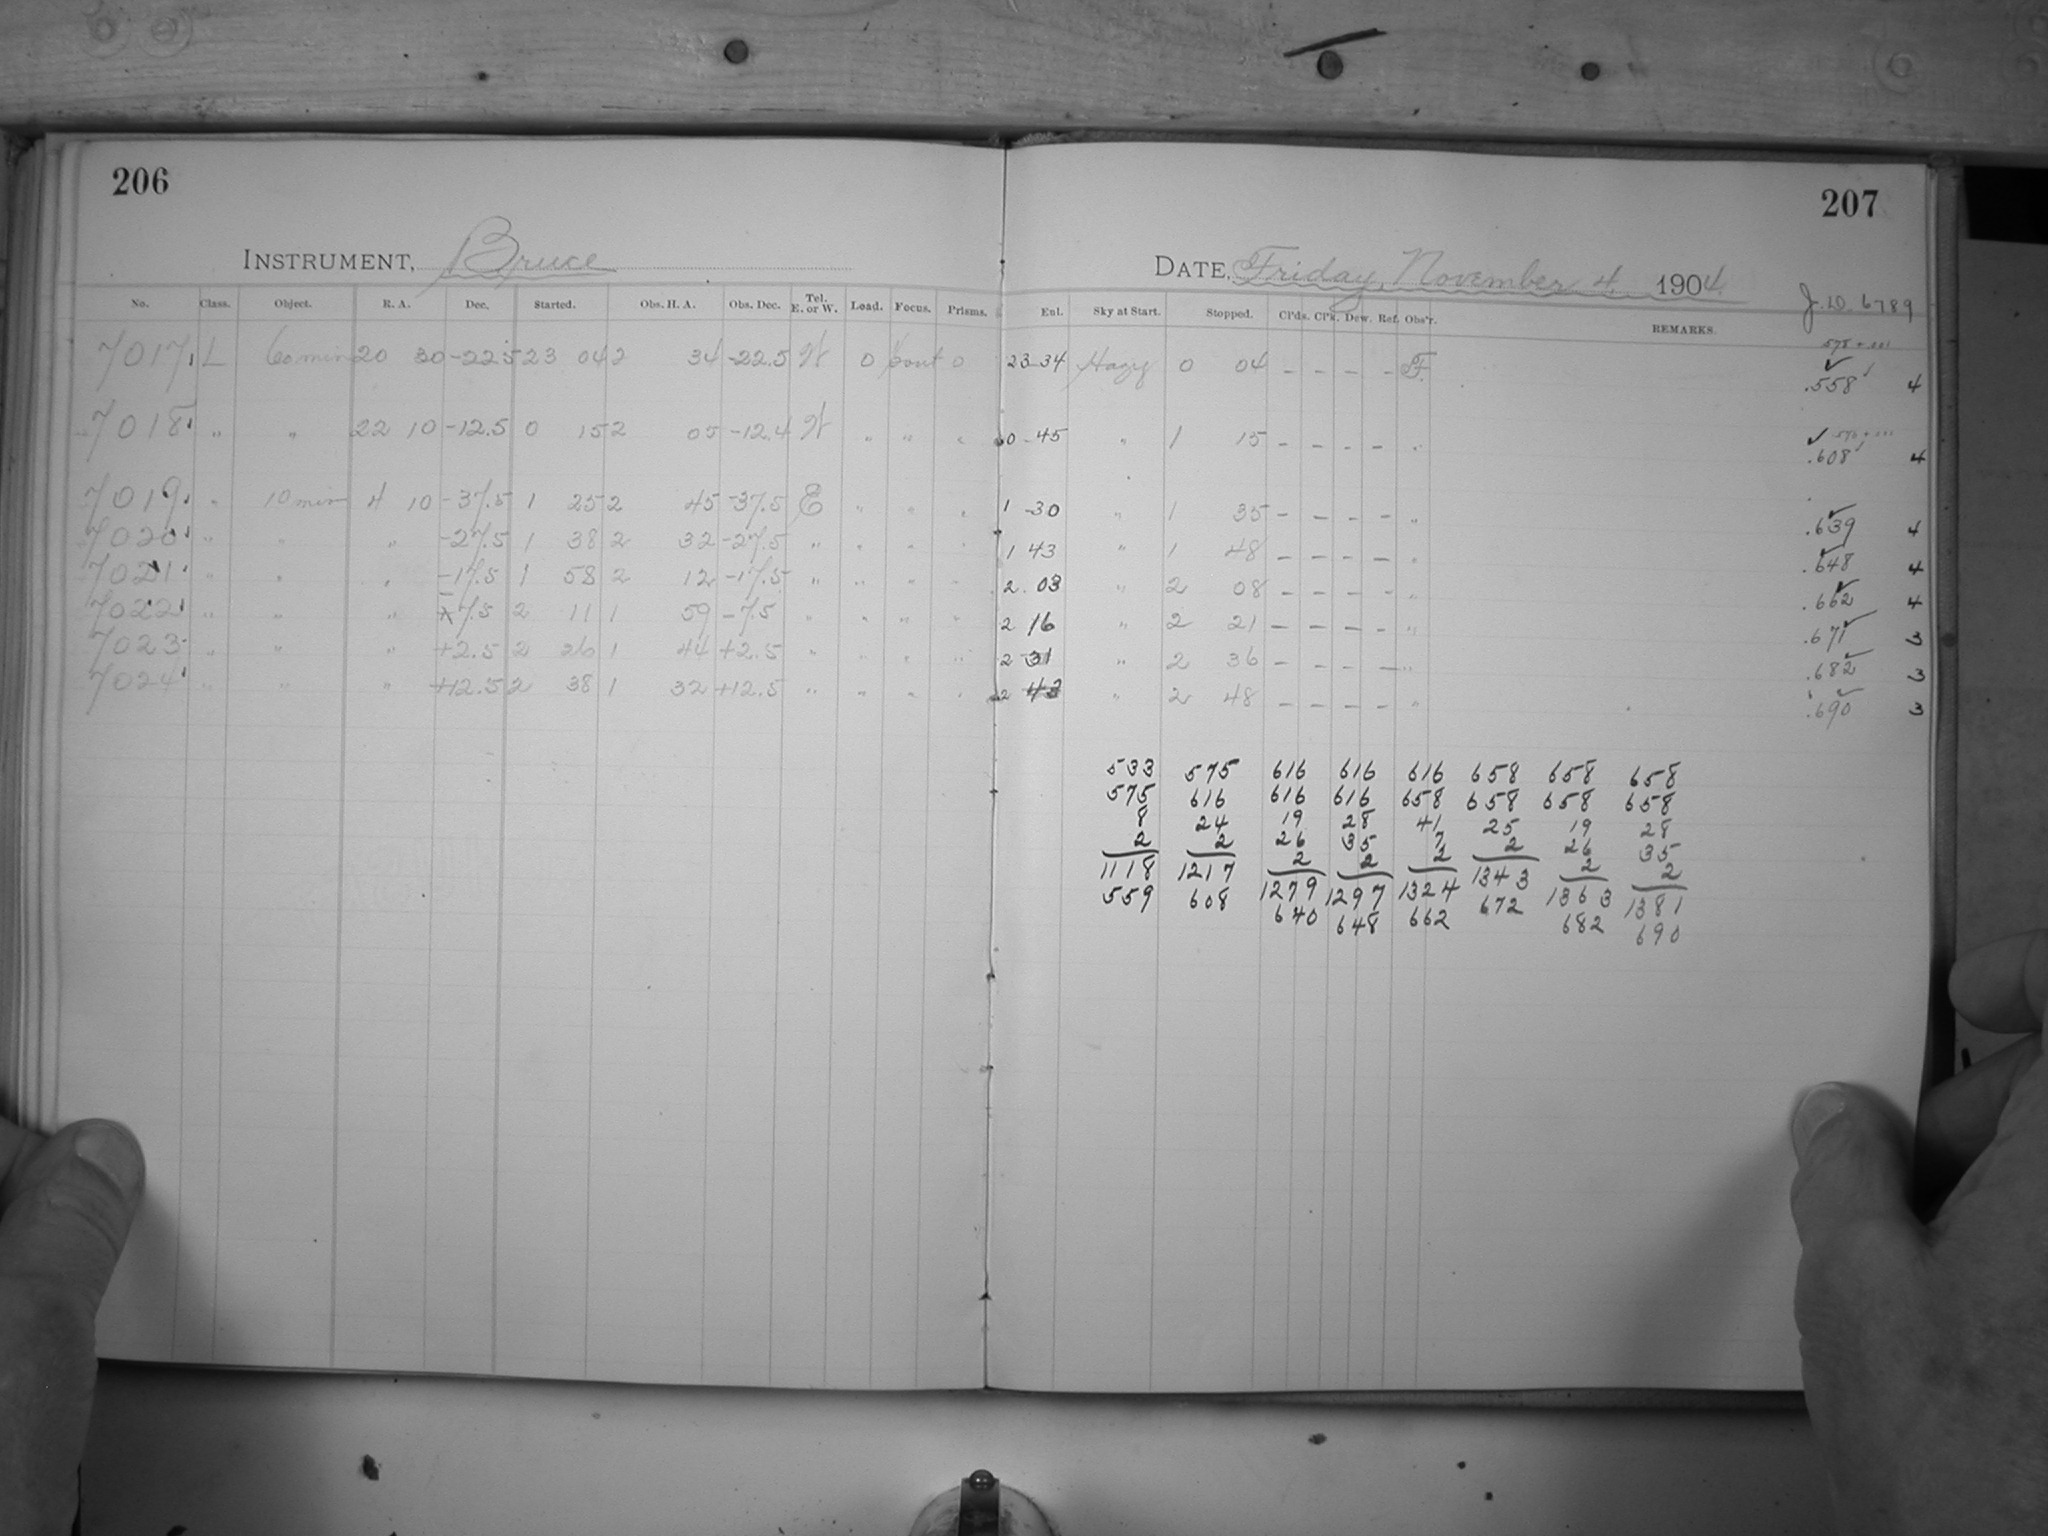 206
207
INSTRUMENT, Bruce
DATE, Friday, November 4, 1904.
J. D. 6789
No. Class. Object. R. A. Dec. Started. Obs. H. A. Obs. Dec. Tel. E. or W. Load. Focus. Prisms. Enl. Sky at Start. Stopped. Cl'ds. Cl'k. Dew. Ref. Obs'r. REMARKS.
7017 L 60 min 20 30 -22.5 23 04 2 34 -22.5 W 0 0 23 34 Hazy 0 04 - - - - F. .558 4
7018 " " 22 10 -12.5 0 15 2 05 -12.4 W " " " 0 45 " 1 15 - - - - " .608 4
7019 " 10 min 4 10 -37.5 1 25 2 45 -37.5 E " " " 1 30 " 1 35 - - - - " .639 4
7020 " " " -27.5 1 38 2 32 -27.5 " " " " 1 43 " 1 48 - - - - " .648 4
7021 " " " -17.5 1 58 2 12 -17.5 " " " " 2 03 " 2 08 - - - - " .662 4
7022 " " " -7.5 2 11 1 59 -7.5 " " " " 2 16 " 2 21 - - - - " .671 3
7023 " " " +2.5 2 26 1 44 +2.5 " " " " 2 31 " 2 36 - - - - " .682 3
7024 " " " +12.5 2 38 1 32 +12.5 " " " " 2 43 " 2 48 - - - - " .690 3
533 575 616 616 616 658 658 658
575 616 616 616 658 658 658 658
8 24 19 28 41 25 19 28
2 2 26 35 7 2 26 35
1118 1217 2 2 2 1343 2 2
559 608 1279 1297 1324 672 1363 1381
640 648 662 682 690